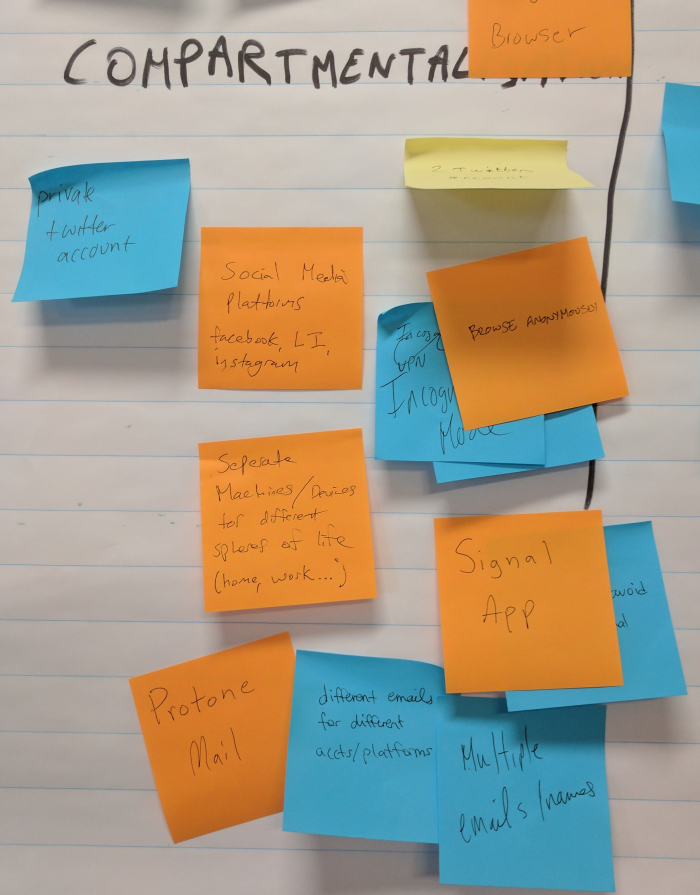 Browser
COMPARTMENTAL
private
twitter
account
2 Twitter
Social Media
Platforms
facebook, LI,
instagram
BROWSE ANONYMOUSLY
VPN
Mode
Seperate
Machines/Devices
for different
spheres of life
(home, work...)
Signal
App
Protone
Mail
different emails
for different
accts/platforms
Multiple
emails/names